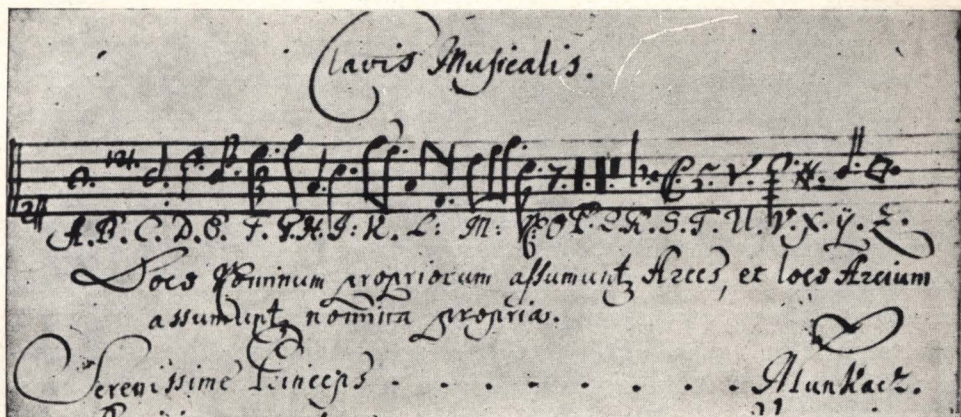 Clavis Musicalis.
A. B. C. D. E. F. G. H. I: K. L: M: O P. Q. R. S. T. U. V. X. ÿ. Z.
Loco Nominum propriorum assumunt, Arces, et loco Arcium
assumunt, nomina propria.
Serenissime Princeps . . . . . . . . Munkacz.